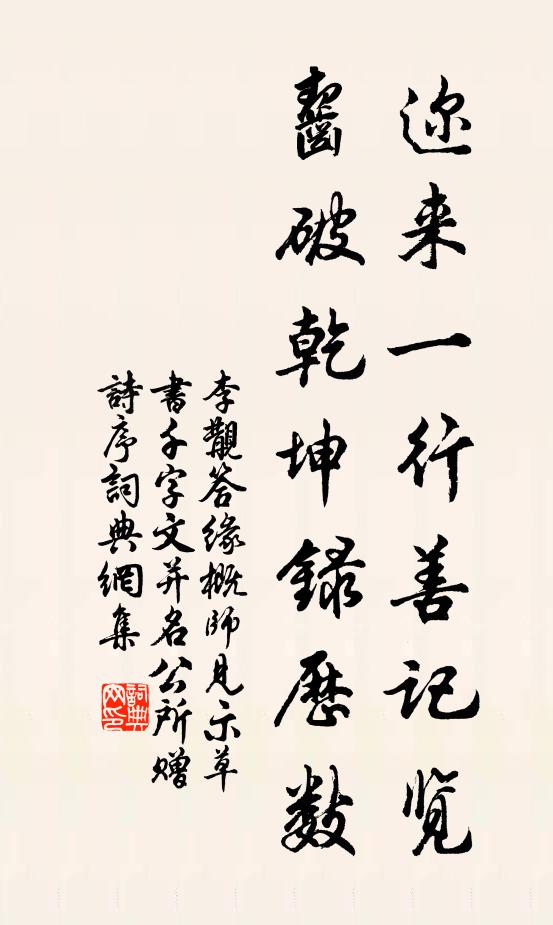 迩来一行善记览
齧破乾坤録歷数
李觏答缘概师见示草
書千字文并名公所赠
詩序詞典網集
詞典网印